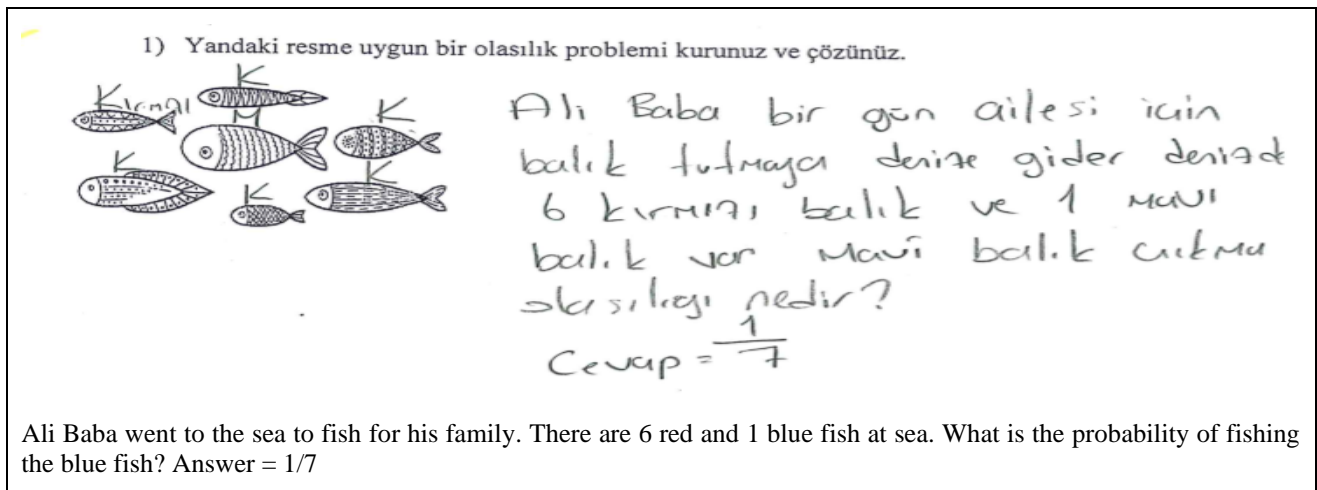 1) Yandaki resme uygun bir olasılık problemi kurunuz ve çözünüz.
K
Kırmızı
M
K
K
K
K
Ali Baba bir gün ailesi için
balık tutmaya denize gider denizde
6 kırmızı balık ve 1 mavi
balık var Mavi balık çıkma
olasılığı nedir?
Cevap = 1/7
Ali Baba went to the sea to fish for his family. There are 6 red and 1 blue fish at sea. What is the probability of fishing
the blue fish? Answer = 1/7